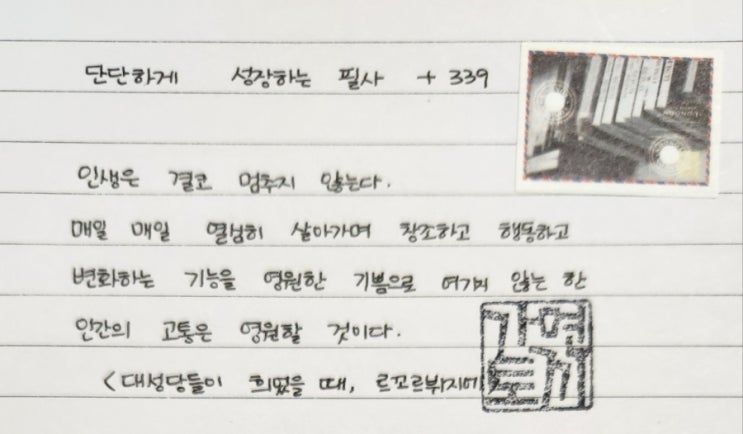 단단하게 성장하는 필사 + 339
인생은 결코 멈추지 않는다.
매일 매일 열심히 살아가며 창조하고 행동하고
변화하는 기능을 영원한 기쁨으로 여기지 않는 한
인간의 고통은 영원할 것이다.
<대성당들이 희었을 때, 르꼬르뷔지에